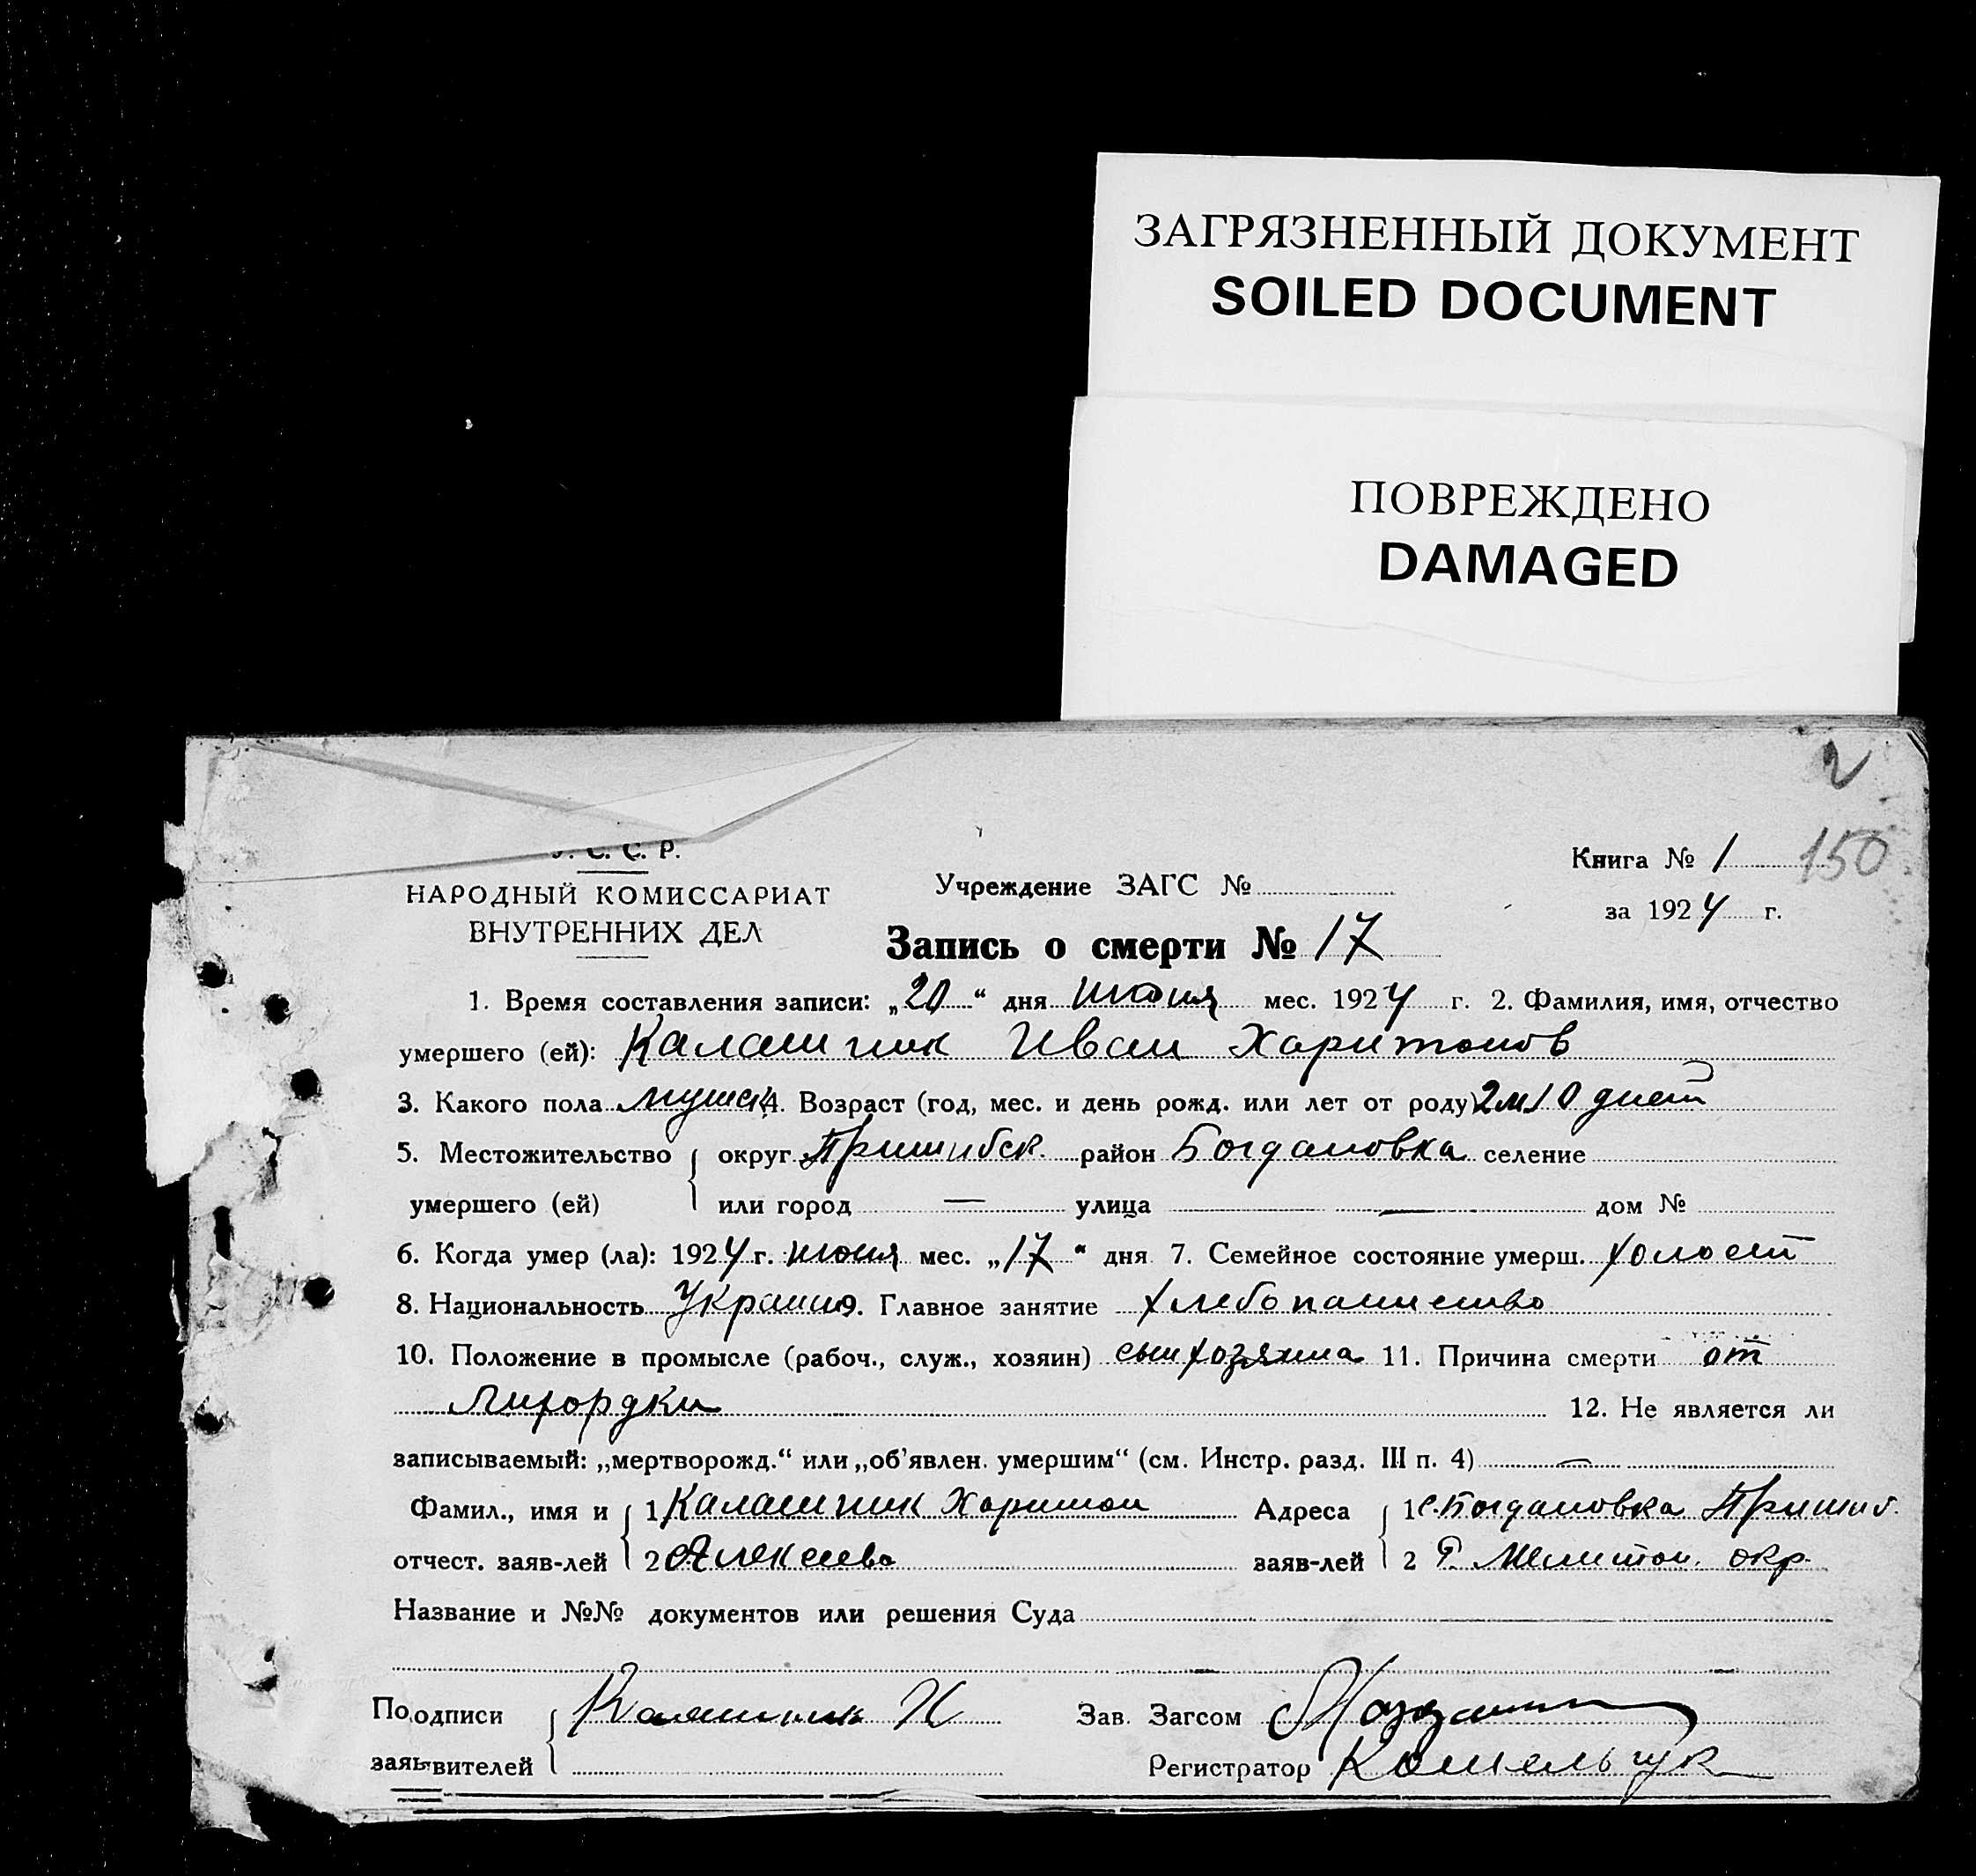 ЗАГРЯЗНЕННЫЙ ДОКУМЕНТ
SOILED DOCUMENT
ПОВРЕЖДЕНО
DAMAGED
2
У. С. С. Р.
НАРОДНЫЙ КОМИССАРИАТ
ВНУТРЕННИХ ДЕЛ
Учреждение ЗАГС №
Книга № 1 150
за 1924 г.
Запись о смерти № 17
1. Время составления записи: „20“ дня июня мес. 1924 г. 2. Фамилия, имя, отчество
умершего (ей): Калашник Иван Харитонов
3. Какого пола мужск 4. Возраст (год, мес. и день рожд. или лет от роду) 2 м 10 дней
5. Местожительство округ Пришибск. район Богдановка селение
умершего (ей) или город — улица — дом №
6. Когда умер (ла): 1924 г. июня мес. „17“ дня 7. Семейное состояние умерш. холост
8. Национальность Украин 9. Главное занятие хлебопашество
10. Положение в промысле (рабоч., служ., хозяин) сын хозяина 11. Причина смерти от
лихордки 12. Не является ли
записываемый: „мертворожд.“ или „об'явлен. умершим“ (см. Инстр. разд. III п. 4) —
Фамил., имя и 1 Калашник Харитон Адреса 1 с. Богдановка Пришиб.
отчест. заяв-лей 2 Алексеев заяв-лей 2 Р. Мелитоп. окр.
Название и №№ документов или решения Суда
Подписи Калашник Х Зав. Загсом
заявителей Регистратор